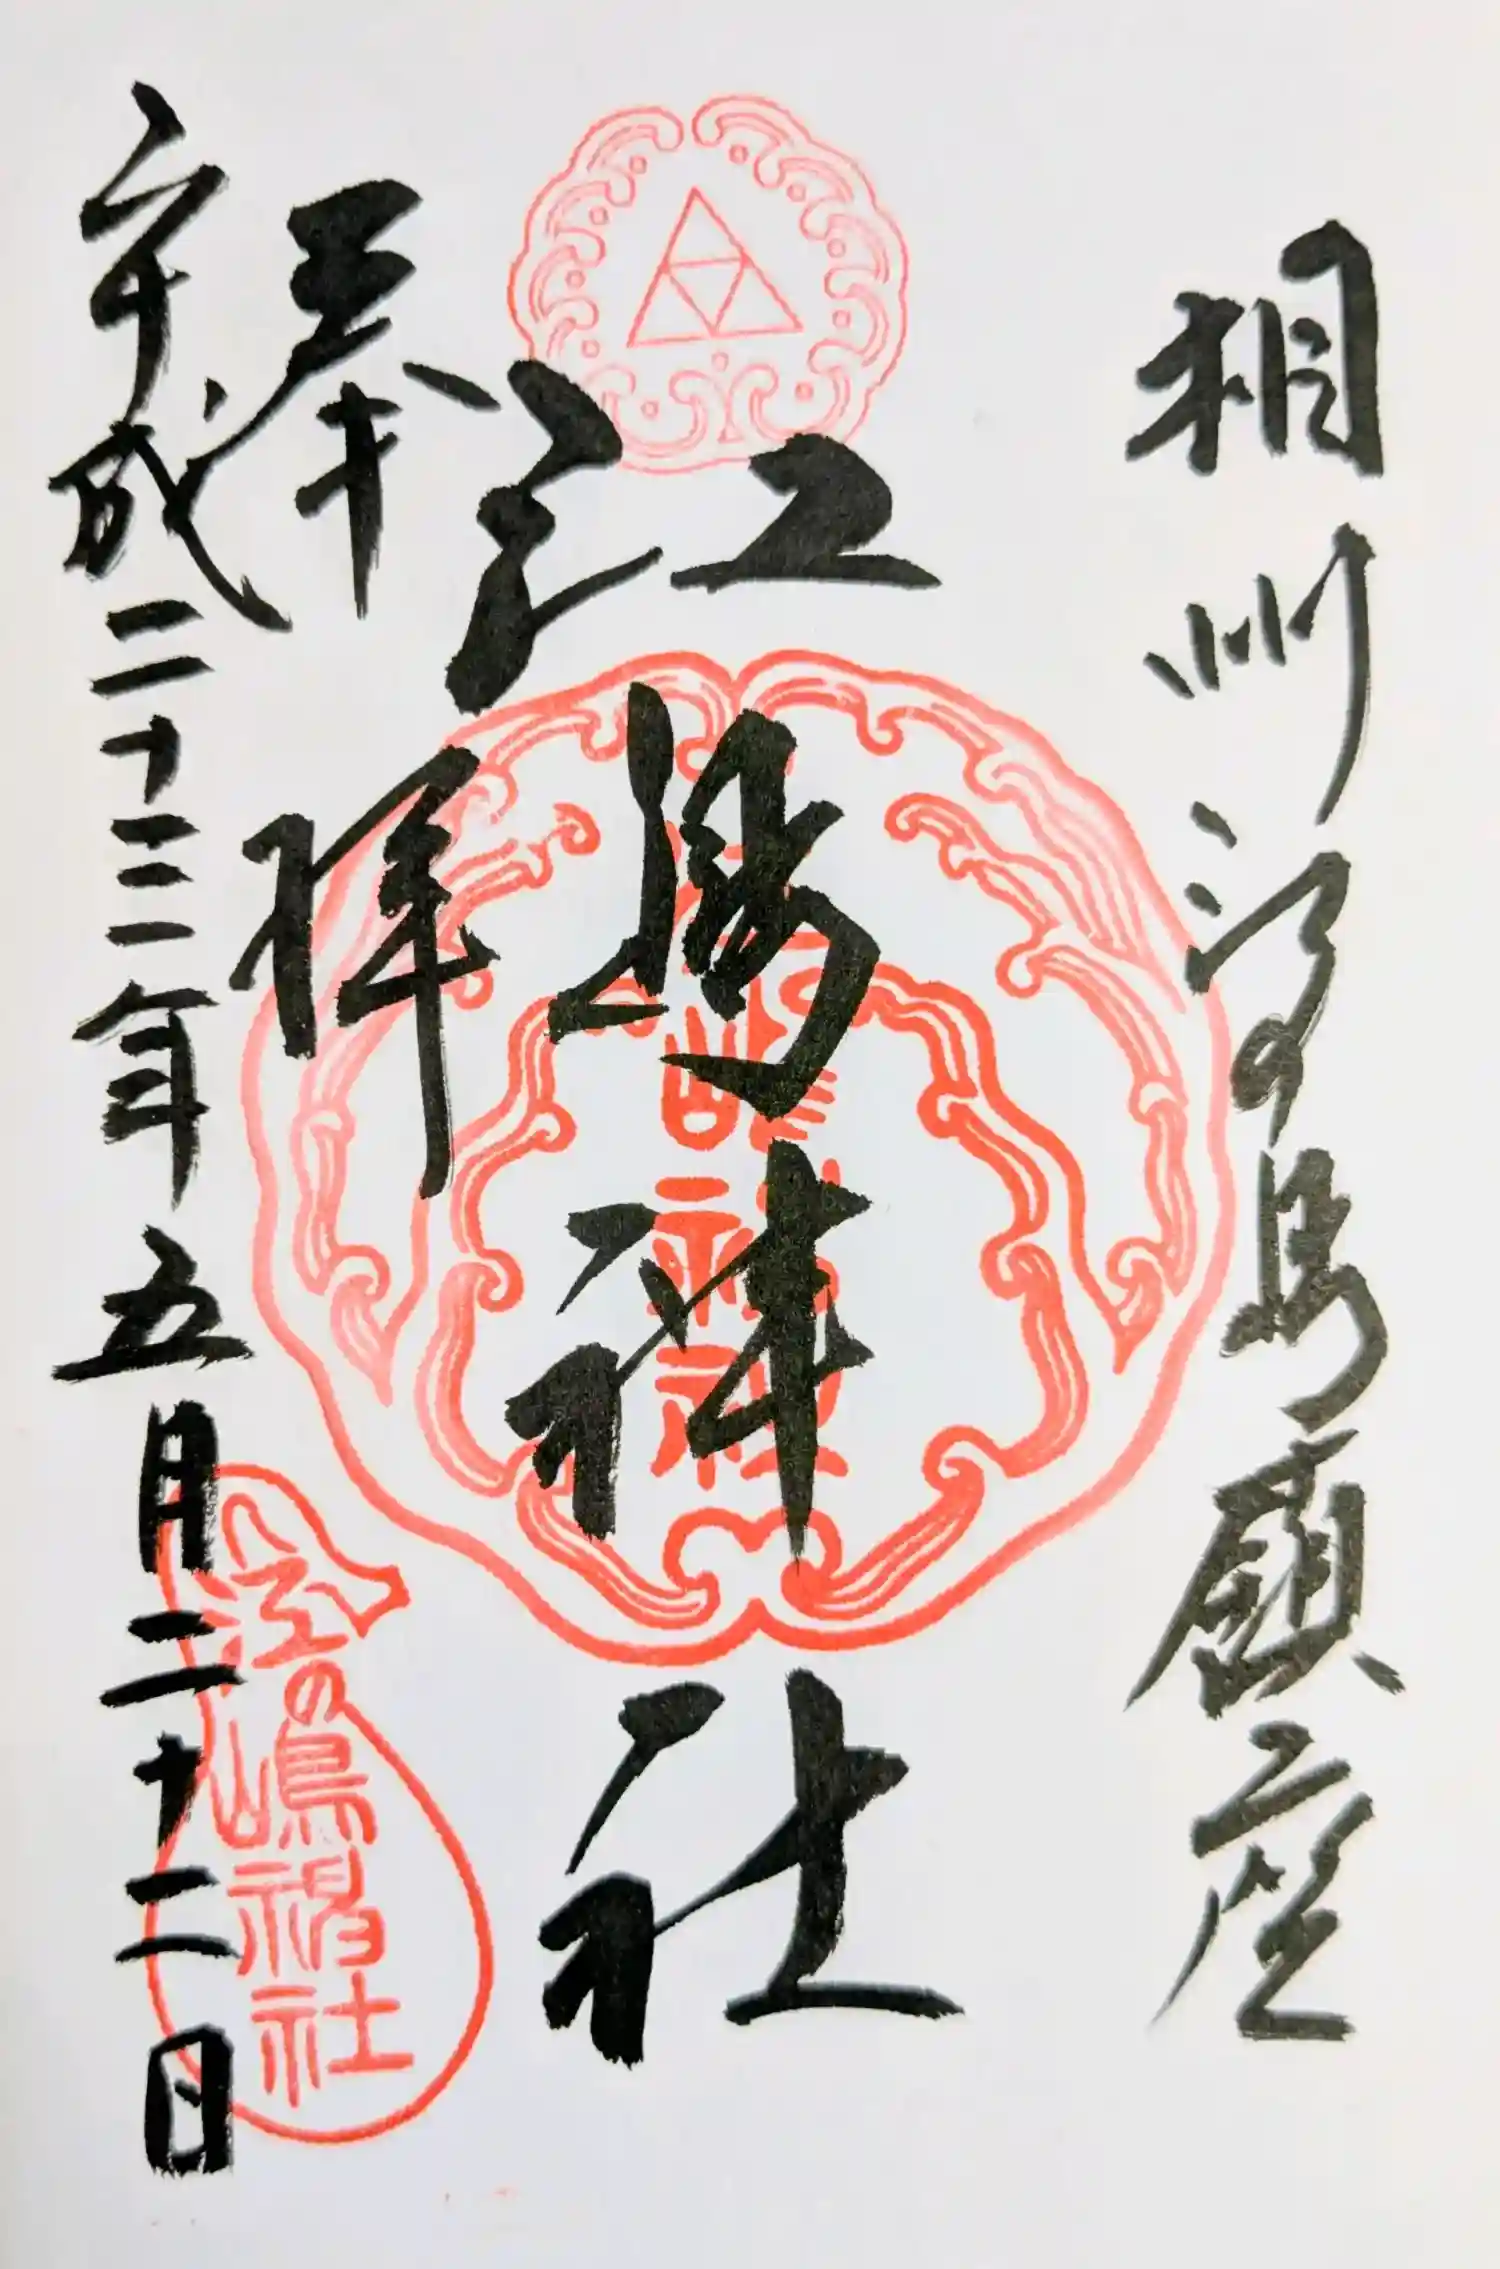 相州江の島鎮座
江島神社
奉拝
平成二十三年五月二十二日
江の嶋神社